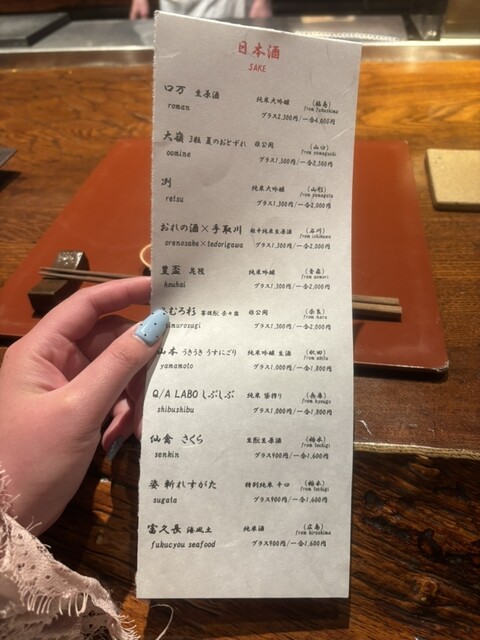 日本酒
SAKE
ロ万 生原酒 純米大吟醸 (福島)
roman グラス2,300円/一合4,600円 from fukushima
大嶺 3粒 夏のおとずれ 非公開 (山口)
oomine グラス1,300円/一合2,300円 from yamaguchi
冽 純米大吟醸 (山形)
retsu グラス1,300円/一合2,000円 from yamagata
おれの酒×手取川 純米生原酒 (石川)
orenosake×tedorigawa グラス1,300円/一合2,000円 from ishikawa
豊盃 純米吟醸 (青森)
houhai グラス1,300円/一合2,000円 from aomori
むろ杉 菩提酛 非公開 (奈良)
imurosugi グラス1,300円/一合2,000円 from nara
山本 うきうき うすにごり 純米吟醸 生酒 (秋田)
yamamoto グラス1,000円/一合1,800円 from akita
Q/A LABO しぶしぶ 純米 槽搾り (兵庫)
shibushibu グラス1,000円/一合1,800円 from hyougo
仙禽 さくら 生酛生原酒 (栃木)
senkin グラス900円/一合1,600円 from tochigi
姿 斬れすがた 特別純米 辛口 (栃木)
sugata グラス900円/一合1,600円 from tochigi
富久長 海風土 純米酒 (広島)
fukucyou seafood グラス900円/一合1,600円 from hiroshima